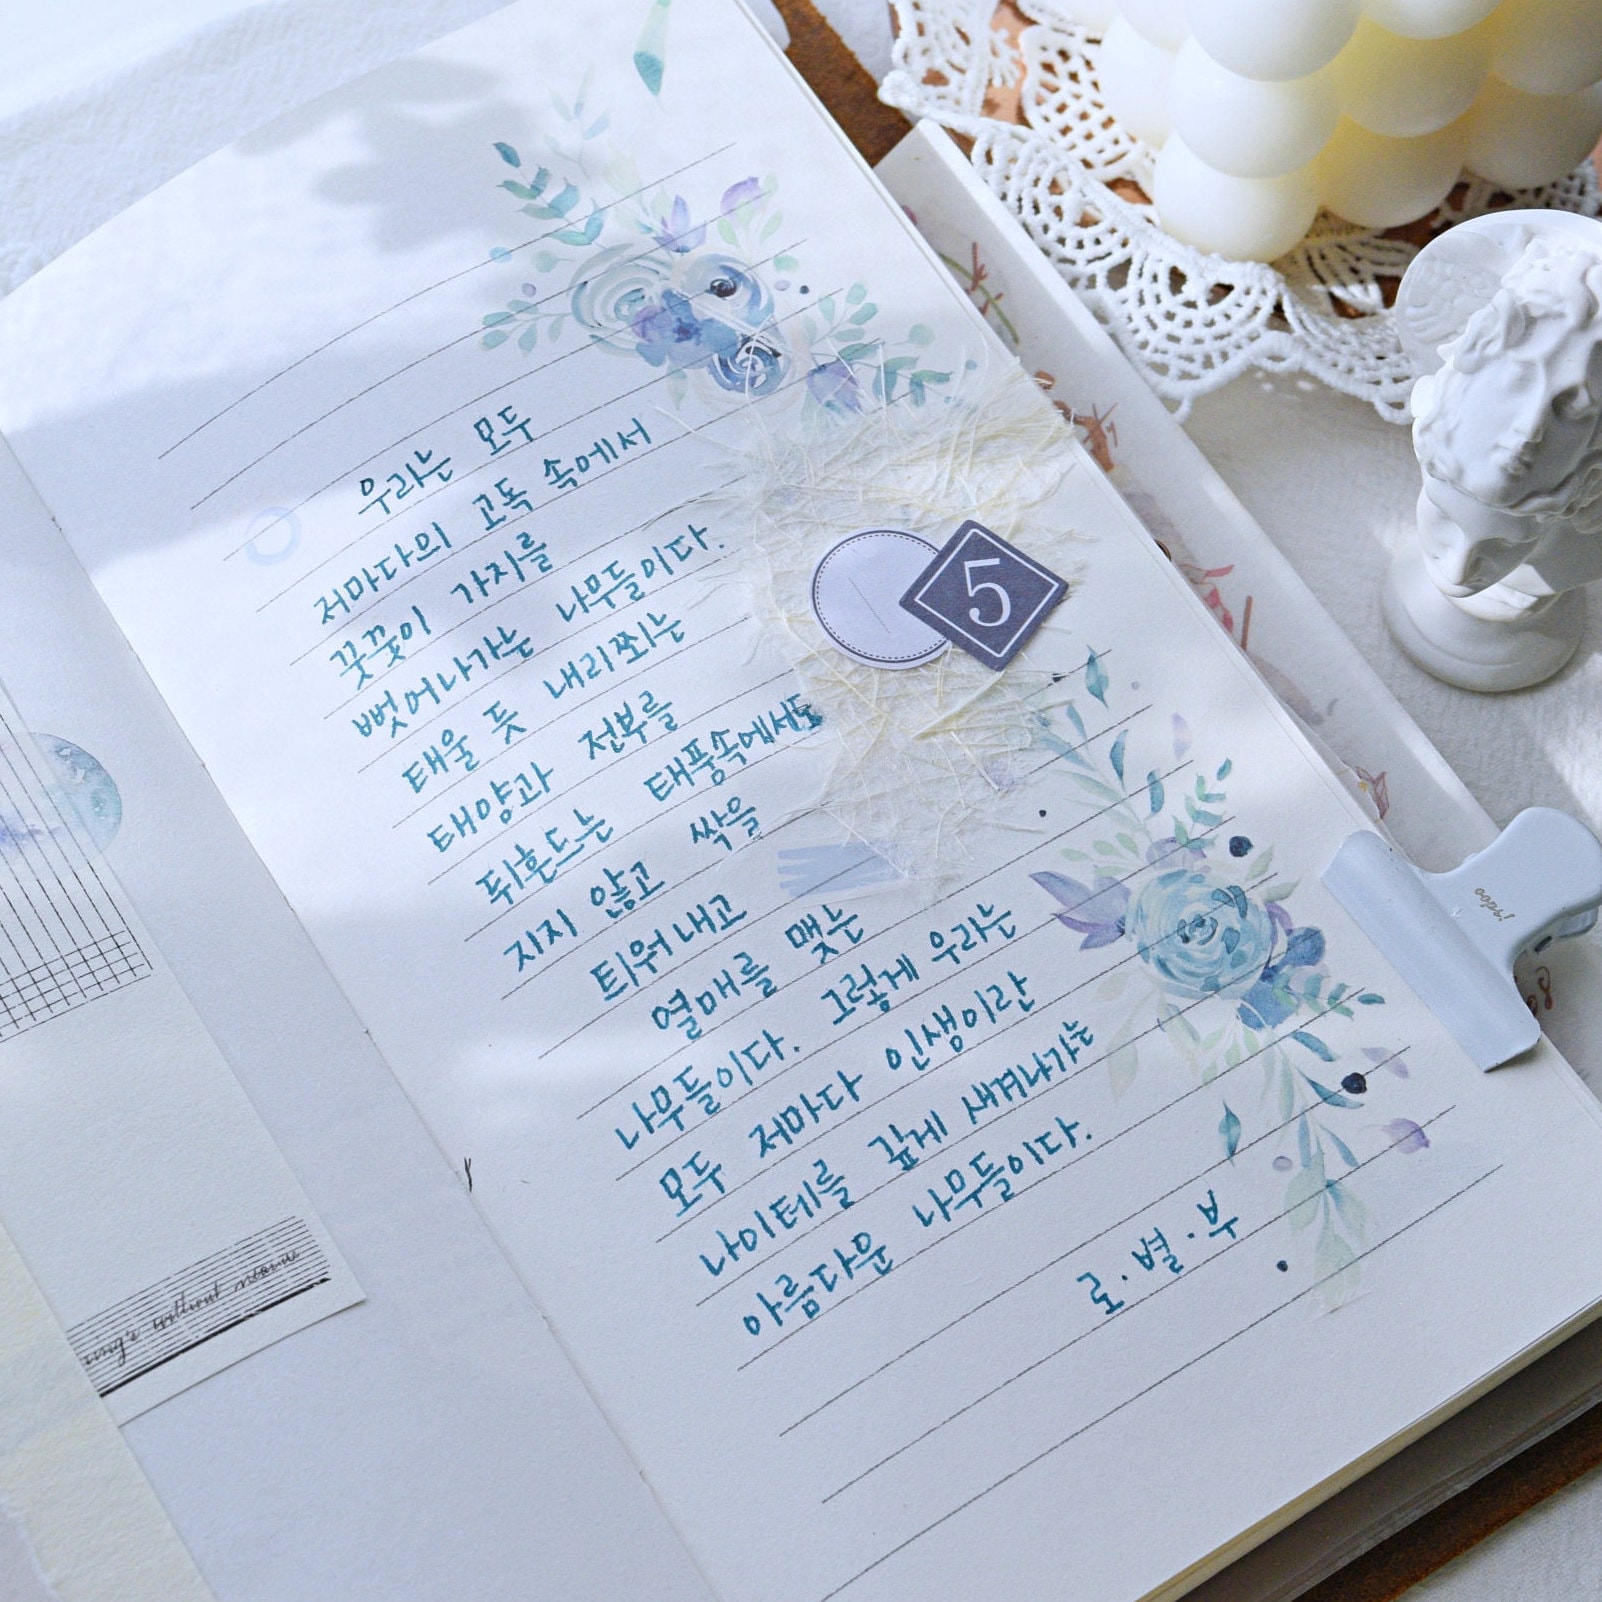 우리는 모두
저마다의 고독 속에서
꿋꿋이 가지를
뻗어나가는 나무들이다.
태울 듯 내리쬐는
태양과 전부를
뒤흔드는 태풍속에서도
지지 않고 싹을
틔워내고
열매를 맺는
나무들이다. 그렇게 우리는
모두 저마다 인생이란
나이테를 깊게 새겨나가는
아름다운 나무들이다.
로.별.부
5
without